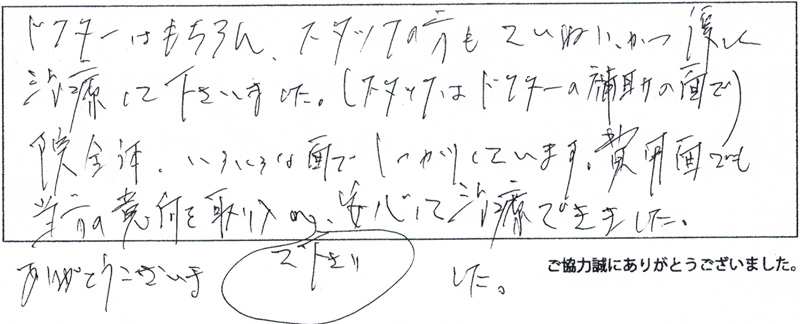 ドクターはもちろん、スタッフの方もていねいに、かつ優しく
治療して下さいました。(スタッフはドクターの補助の面で)
院全体、いろいろな面でしっかりしています。費用面でも
当方の意向を取り入れ、安心して治療できました。
て下さり
ありがとうございました。
ご協力誠にありがとうございました。